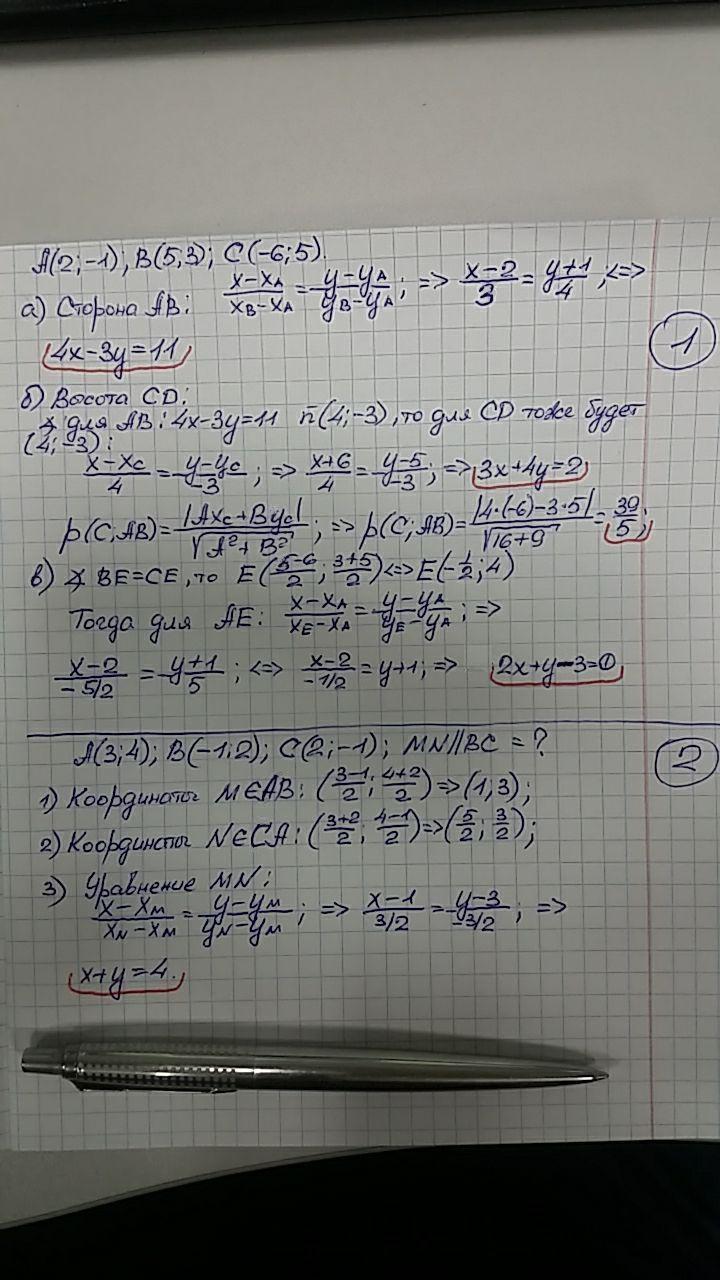 A(2;-1), B(5,3); C(-6;5).
а) Сторона AB: (x-x_A)/(x_B-x_A) = (y-y_A)/(y_B-y_A); => (x-2)/3 = (y+1)/4; <=>
4x-3y=11
1
б) Высота CD:
∡ для AB: 4x-3y=11 n̄(4;-3), то для CD тоже будет
(4;-3):
(x-x_C)/4 = (y-y_C)/-3; => (x+6)/4 = (y-5)/-3; => 3x+4y=2
ρ(C;AB) = |Ax_C+By_C|/√(A²+B²); => ρ(C;AB) = |4·(-6)-3·5|/√(16+9) = 39/5;
в) ∡ BE=CE, то E((5-6)/2; (3+5)/2) <=> E(-1/2; 4)
Тогда для AE: (x-x_A)/(x_E-x_A) = (y-y_A)/(y_E-y_A); =>
(x-2)/(-5/2) = (y+1)/5; <=> (x-2)/(-1/2) = y+1; => 2x+y-3=0
A(3;4); B(-1;2); C(2;-1); MN||BC = ?
2
1) Координаты M∈AB: ((3-1)/2; (4+2)/2) => (1;3);
2) Координаты N∈CA: ((3+2)/2; (4-1)/2) => (5/2; 3/2);
3) Уравнение MN:
(x-x_M)/(x_N-x_M) = (y-y_M)/(y_N-y_M); => (x-1)/(3/2) = (y-3)/(-3/2); =>
x+y=4.